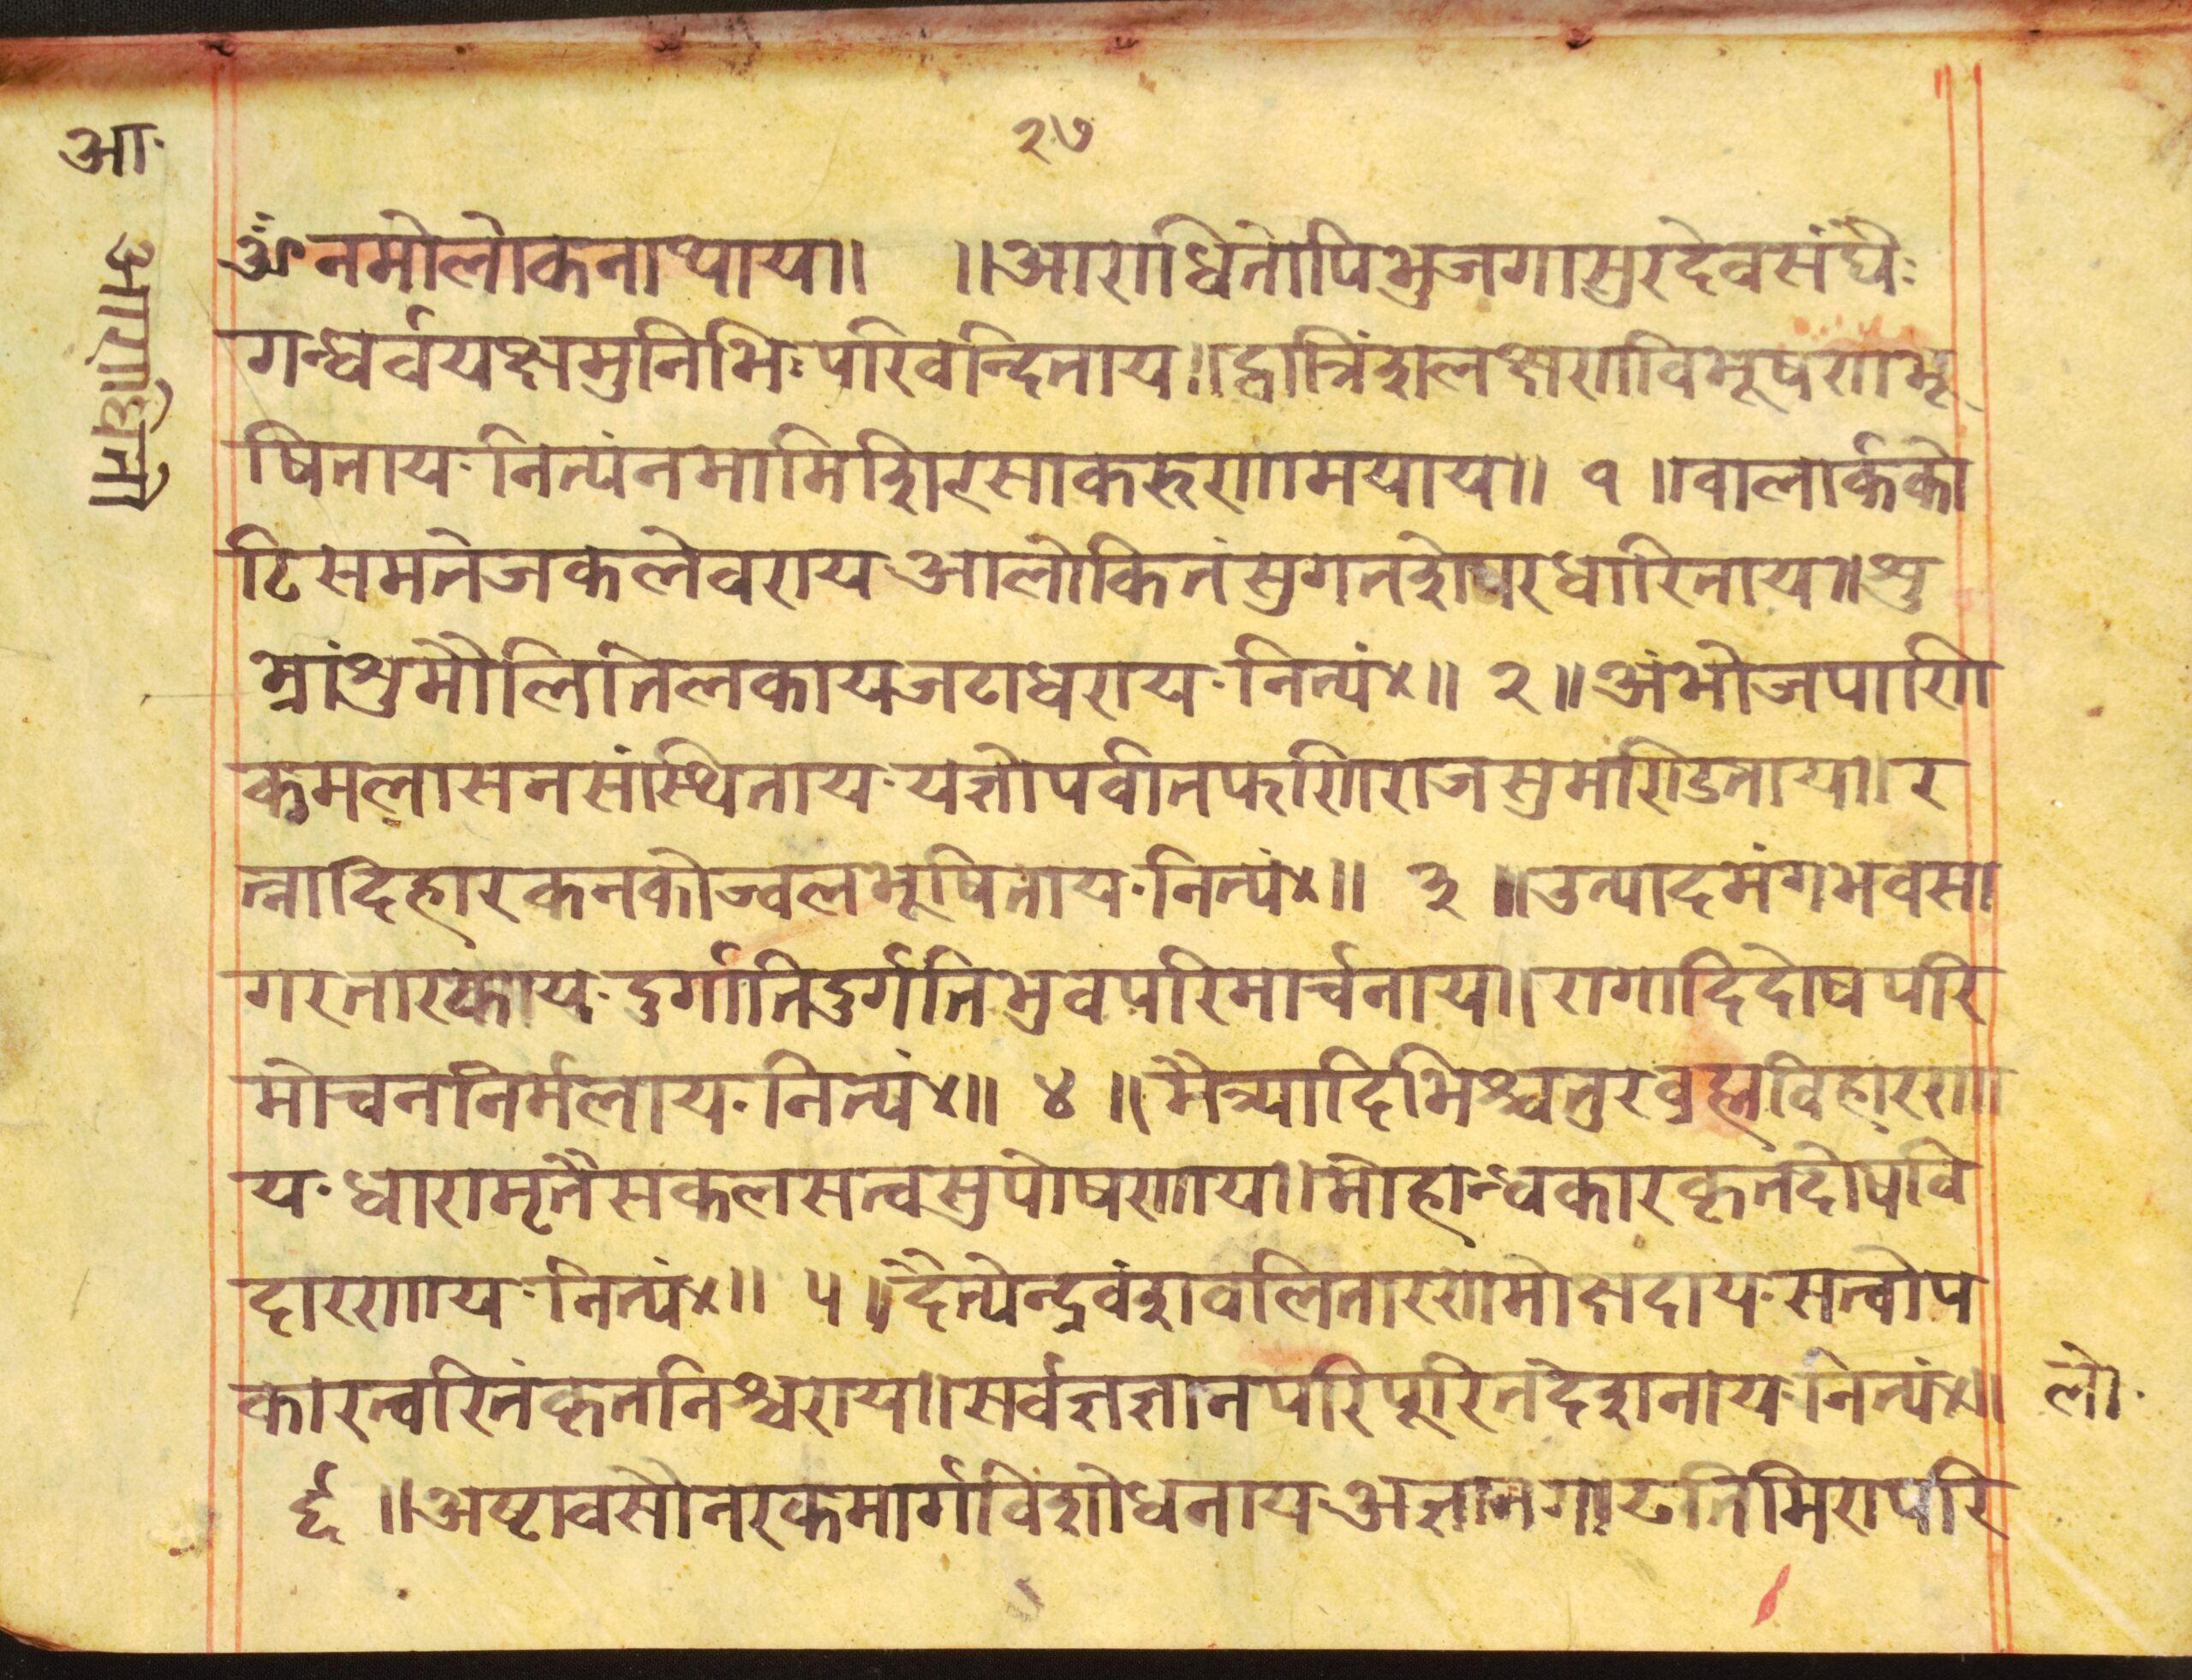 आ·
२७
आराधितो
ॐनमोलोकनाथाय॥ ॥आराधितोपिभुजगासुरदेवसंघैः
गन्धर्वयक्षमुनिभिःपरिवन्दिताय॥द्वात्रिंशलक्षणविभूषणभू
षिताय·नित्यंनमामिशिरसाकरुणामयाय॥ १ ॥वालार्ककी
टिसमतेजकलेवराय·आलोकितंसुगतशेषरधारिताय॥शु
भ्रांशुमौलितिलकायजटाधराय·नित्यं४॥ २ ॥अंभोजपाणि
कमलासनसंस्थिताय·यज्ञोपवीतफणिराजसुमण्डिताय॥र
त्नादिहारकनकोज्वलभूषिताय·नित्यं४॥ ३ ॥उत्पादमंगभवसा
गरतारकाय·दुर्गातिदुर्गतिभुवपरिमार्चनाय॥रागादिदोषपरि
मोचननिर्मलाय·नित्यं४॥ ४ ॥मैत्र्यादिभिश्चतुरवह्मविहारणा
य·धारामृतैसकलसत्वसुपोषणाय॥मोहान्धकारकृतदोषवि
दारणाय·नित्यं४॥ ५ ॥दैत्येन्द्रवंशवलितारणमोक्षदाय·सत्वोप
कारत्वरितंकृतनिश्चराय॥सर्वज्ञज्ञानपरिपूरितदेशनाय·नित्यं४॥
लो·
६ ॥अष्टावसौनरकमार्गविशोधनाय·अज्ञानगाढतिमिरापरि